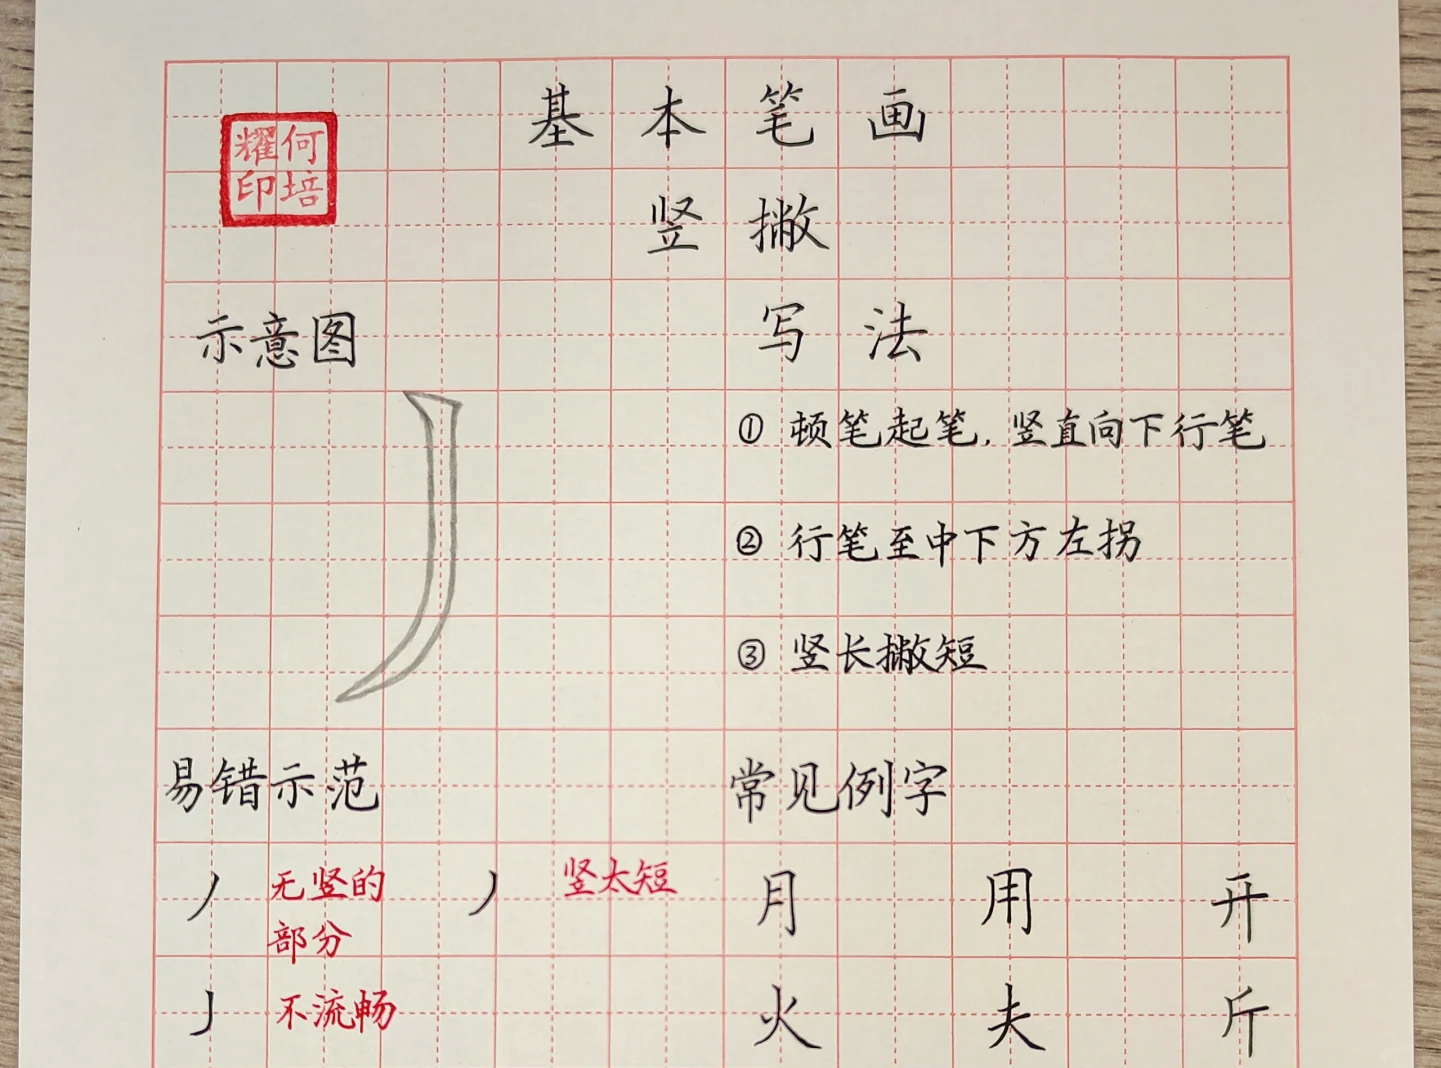 基本笔画
何培耀印
竖撇
示意图
写法
① 顿笔起笔，竖直向下行笔
② 行笔至中下方左拐
③ 竖长撇短
易错示范
无竖的部分
竖太短
不流畅
常见例字
月 用 开
火 夫 斤